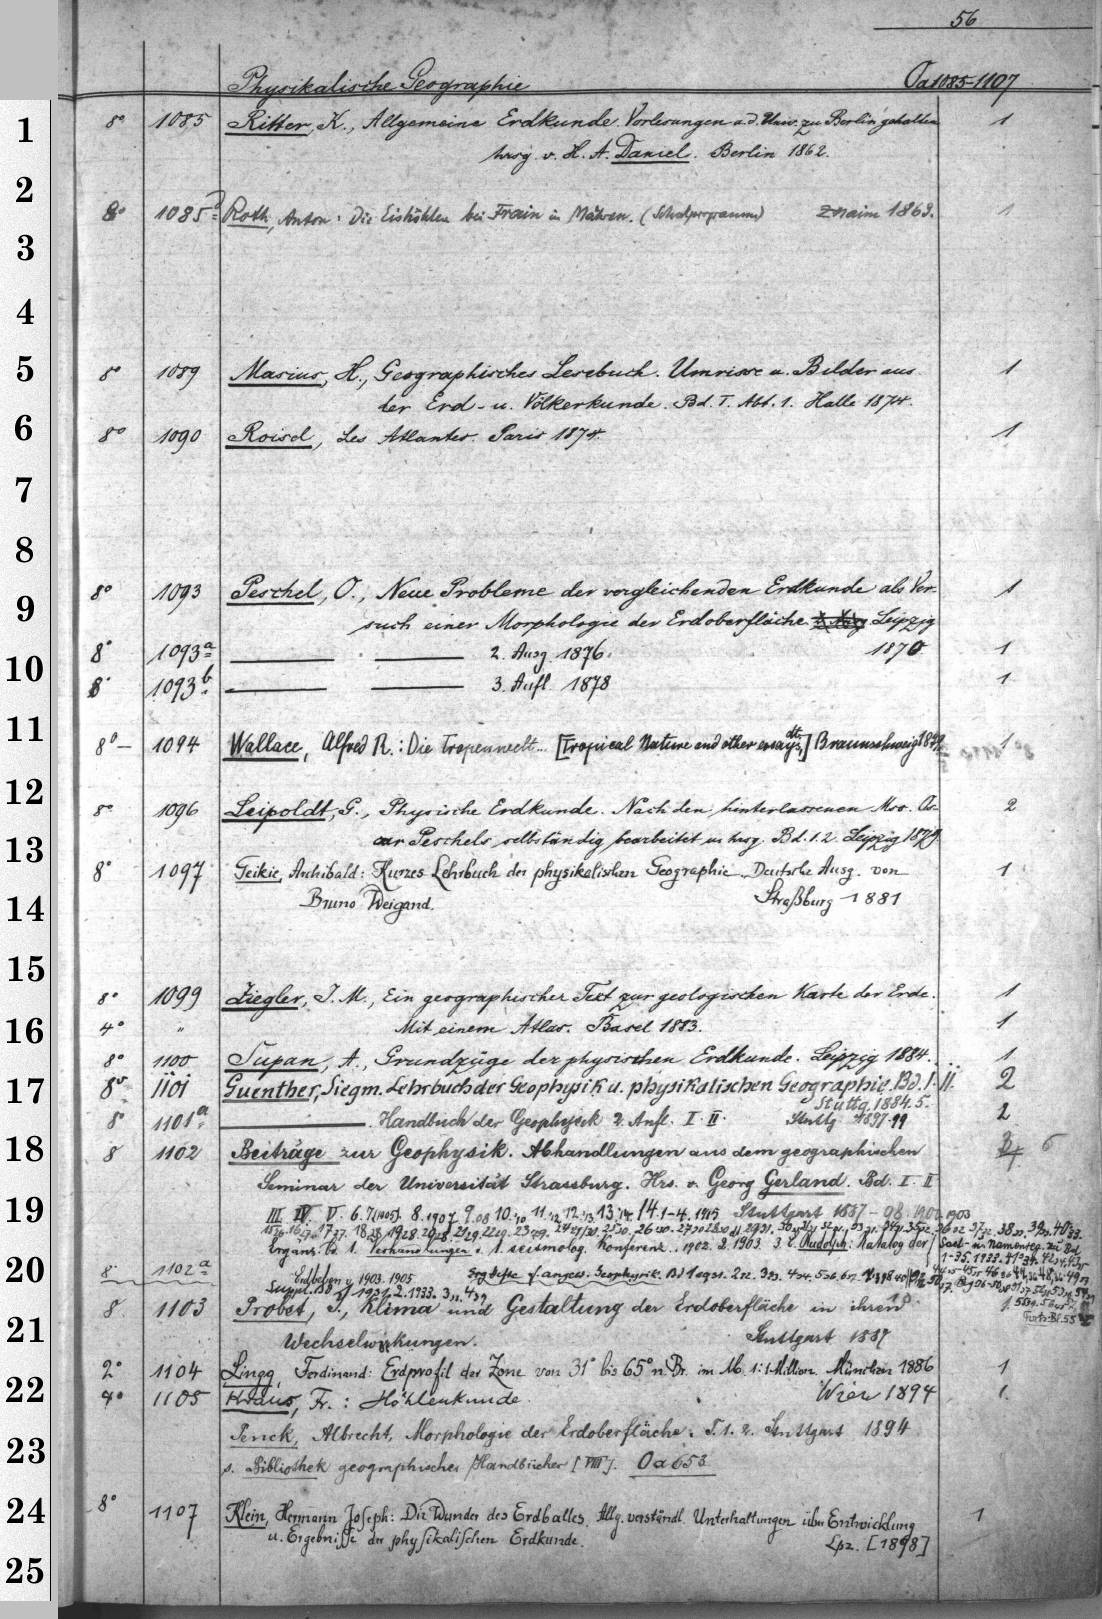 56
Physikalische Geographie Oa 1085-1107
1
8° 1085 Ritter, K., Allgemeine Erdkunde. Vorlesungen a. d. Univ. zu Berlin gehalten 1
hrsg. v. H. A. Daniel. Berlin 1862.
2
8° 1085a Roth, Anton: Die Eishöhlen bei Frain in Mähren. (Schulprogramm) Znaim 1863. 1
3
4
5
8° 1089 Masius, H., Geographisches Lesebuch. Umrisse u. Bilder aus 1
der Erd- u. Völkerkunde. Bd. I. Abt. 1. Halle 1874.
6
8° 1090 Roisel, Les Atlantes. Paris 1874. 1
7
8
8° 1093 Peschel, O., Neue Probleme der vergleichenden Erdkunde als Ver- 1
9
such einer Morphologie der Erdoberfläche Leipzig
1870
8° 1093a — — 2. Ausg. 1876. 1
10
8° 1093b — — 3. Aufl. 1878 1
11
8° — 1094 Wallace, Alfred R.: Die Tropenwelt... [Tropical Nature and other essays, dt.] Braunschweig 1
12
8° 1096 Leipoldt, G., Physische Erdkunde. Nach den hinterlassenen Mss. Os- 2
car Peschels selbständig bearbeitet u. hrsg. Bd. 1. 2. Leipzig 1879.
13
8° 1097 Geikie, Archibald: Kurzes Lehrbuch der physikalischen Geographie. Deutsche Ausg. von 1
Bruno Weigand. Straßburg 1881
14
15
8° 1099 Ziegler, J. M., Ein geographischer Text zur geologischen Karte der Erde. 1
16
4° " Mit einem Atlas. Basel 1883. 1
8° 1100 Supan, A., Grundzüge der physischen Erdkunde. Leipzig 1884. 1
17
8° 1101 Guenther, Siegm. Lehrbuch der Geophysik u. physikalischen Geographie. Bd. I. II. 2
Stuttg. 1884.5.
8° 1101a — . Handbuch der Geophysik 2. Aufl. I. II. Stuttg. 1897-99 2
18
8 1102 Beiträge zur Geophysik. Abhandlungen aus dem geographischen 6
Seminar der Universität Strassburg. Hrs. v. Georg Gerland. Bd. I. II
19
III. IV. V. 6. 7.(1905). 8. 1907. 9. 08 10. 11. 12. 13. 14. 1-4. 1915 Stuttgart 1887-98. 1903
Verhandlungen d. 1. seismolog. Konferenz. 1902. 2. 1903 3. E. Rudolph: Katalog der
20
8 1102a Erdbeben v. 1903. 1905
Suppl. Bd 1. 1931. 2. 1933. 3. 4. Erg. Hefte f. angew. Geophysik. Bd 1
8 1103 Probst, J., Klima und Gestaltung der Erdoberfläche in ihren
21
Wechselwirkungen. Stuttgart 1887
2° 1104 Lingg, Ferdinand: Erdprofil der Zone von 31° bis 65° n. Br. im M. 1:1 Million. München 1886 1
22
4° 1105 Kraus, Fr.: Höhlenkunde. Wien 1894 1.
Penck, Albrecht, Morphologie der Erdoberfläche. T. 1. 2. Stuttgart 1894
23
s. Bibliothek geographischer Handbücher [VIII]. Oa 653
24
8° 1107 Klein, Hermann Joseph: Die Wunder des Erdballes. Allg. verständl. Unterhaltungen über Entwicklung 1
u. Ergebnisse der physikalischen Erdkunde. Lpz. [1898]
25